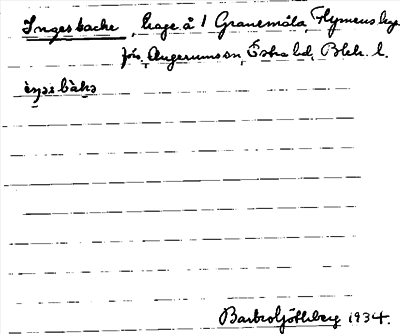 Ingesbacke, hage å 1 Granemåla, Flymens by
fös, Augerums sn, Östra hd, Blek. l.
èŋəsbàkə
Barbro Ljöthberg 1934.